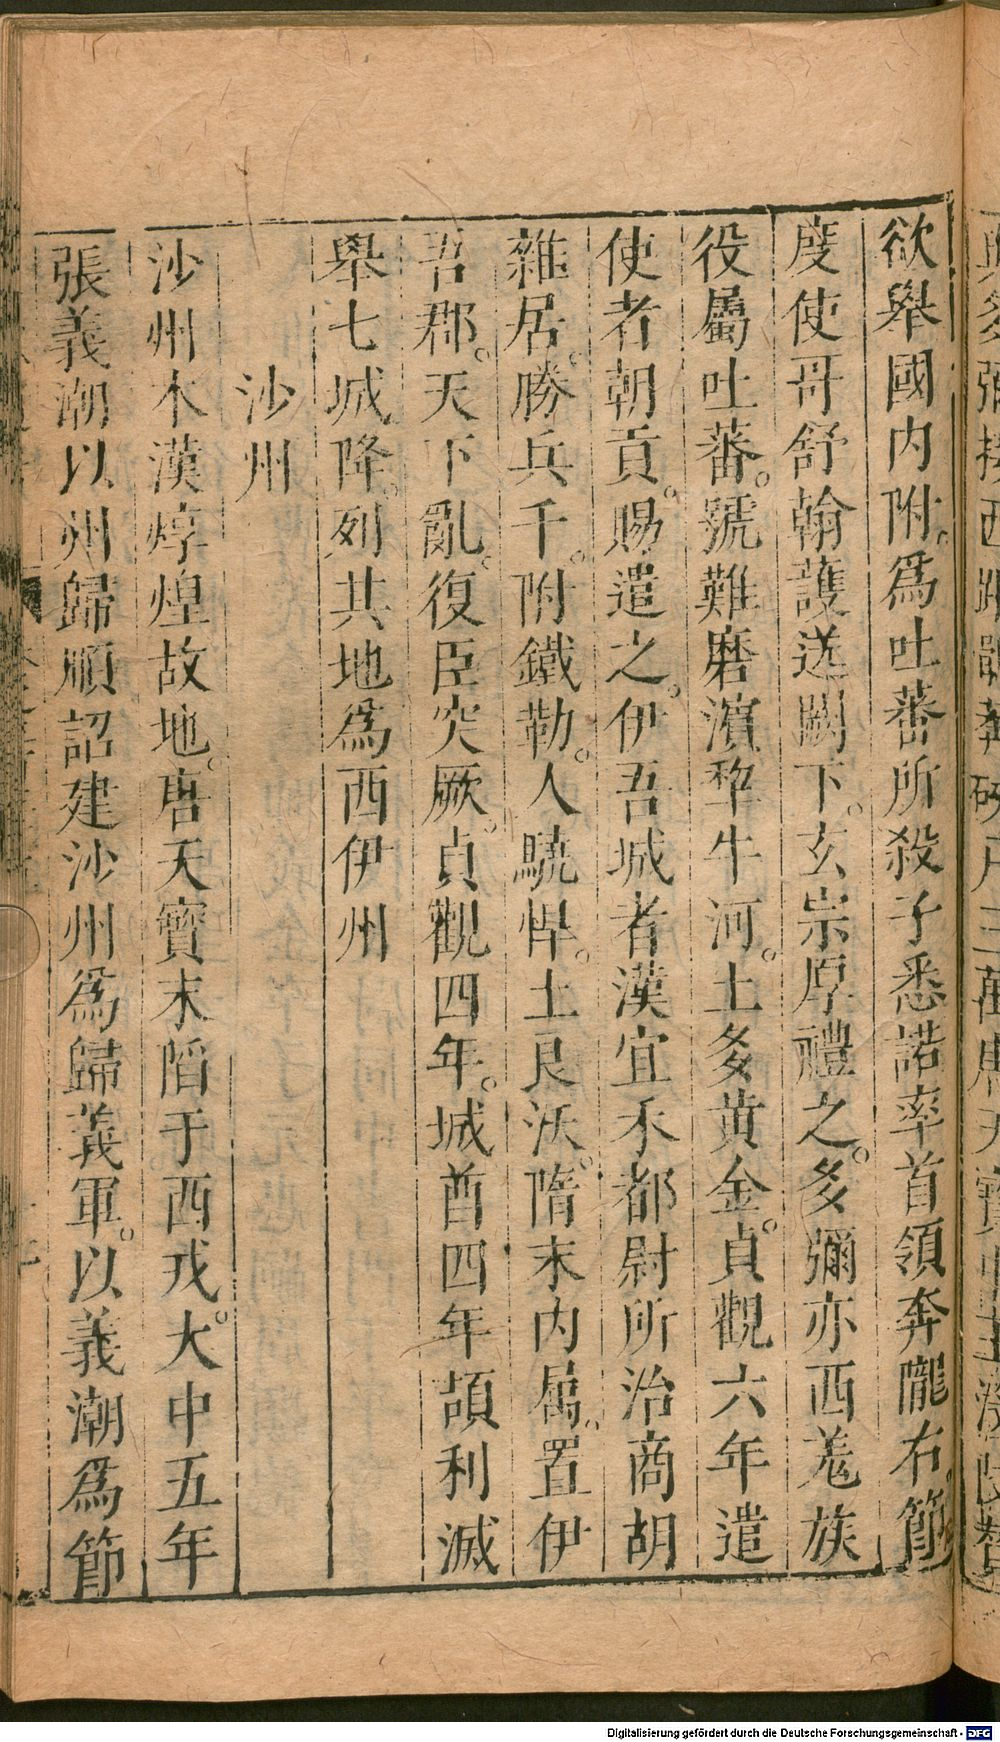 欲舉國内附。爲吐蕃所殺子悉諾率首領奔隴右。節
度使哥舒翰護送闕下。玄宗厚禮之。多彌亦西羗族
役屬吐蕃。號難磨濵犂牛河。土多黄金。貞觀六年遣
使者朝貢。賜遣之。伊吾城者漢宜禾都尉所治商胡
雜居。勝兵千。附鐵勒。人驍悍。土良沃。隋末内属。置伊
吾郡。天下亂。復臣突厥。貞觀四年。城酋四年頡利滅
舉七城降。列其地爲西伊州
沙州
沙州本漢焞煌故地。唐天寳末䧟于西戎。大中五年
張義潮以州歸順詔建沙州爲歸義軍。以義潮爲節
Digitalisierung gefördert durch die Deutsche Forschungsgemeinschaft - DFG